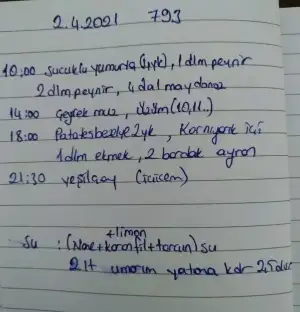 2.4.2021 793
10:00 sucuklu yumurta (1yk), 1 dlm peynir
2 dlm peynir, 4 dal maydanoz
14:00 çeyrek muz,
18:00 Patatesbezelye 2yk, Karnıyarık içi
1 dlm ekmek, 2 bardak ayran
21:30 yeşilçay (içicem)
+limon
Su : (Nane+karanfil+tarçın) su
2 lt umarım yatana kdr 2,5 olur